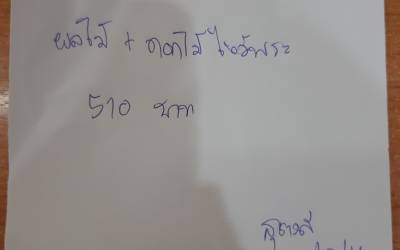 ผลไม้ + ดอกไม้ ไหว้พระ
510 บาท